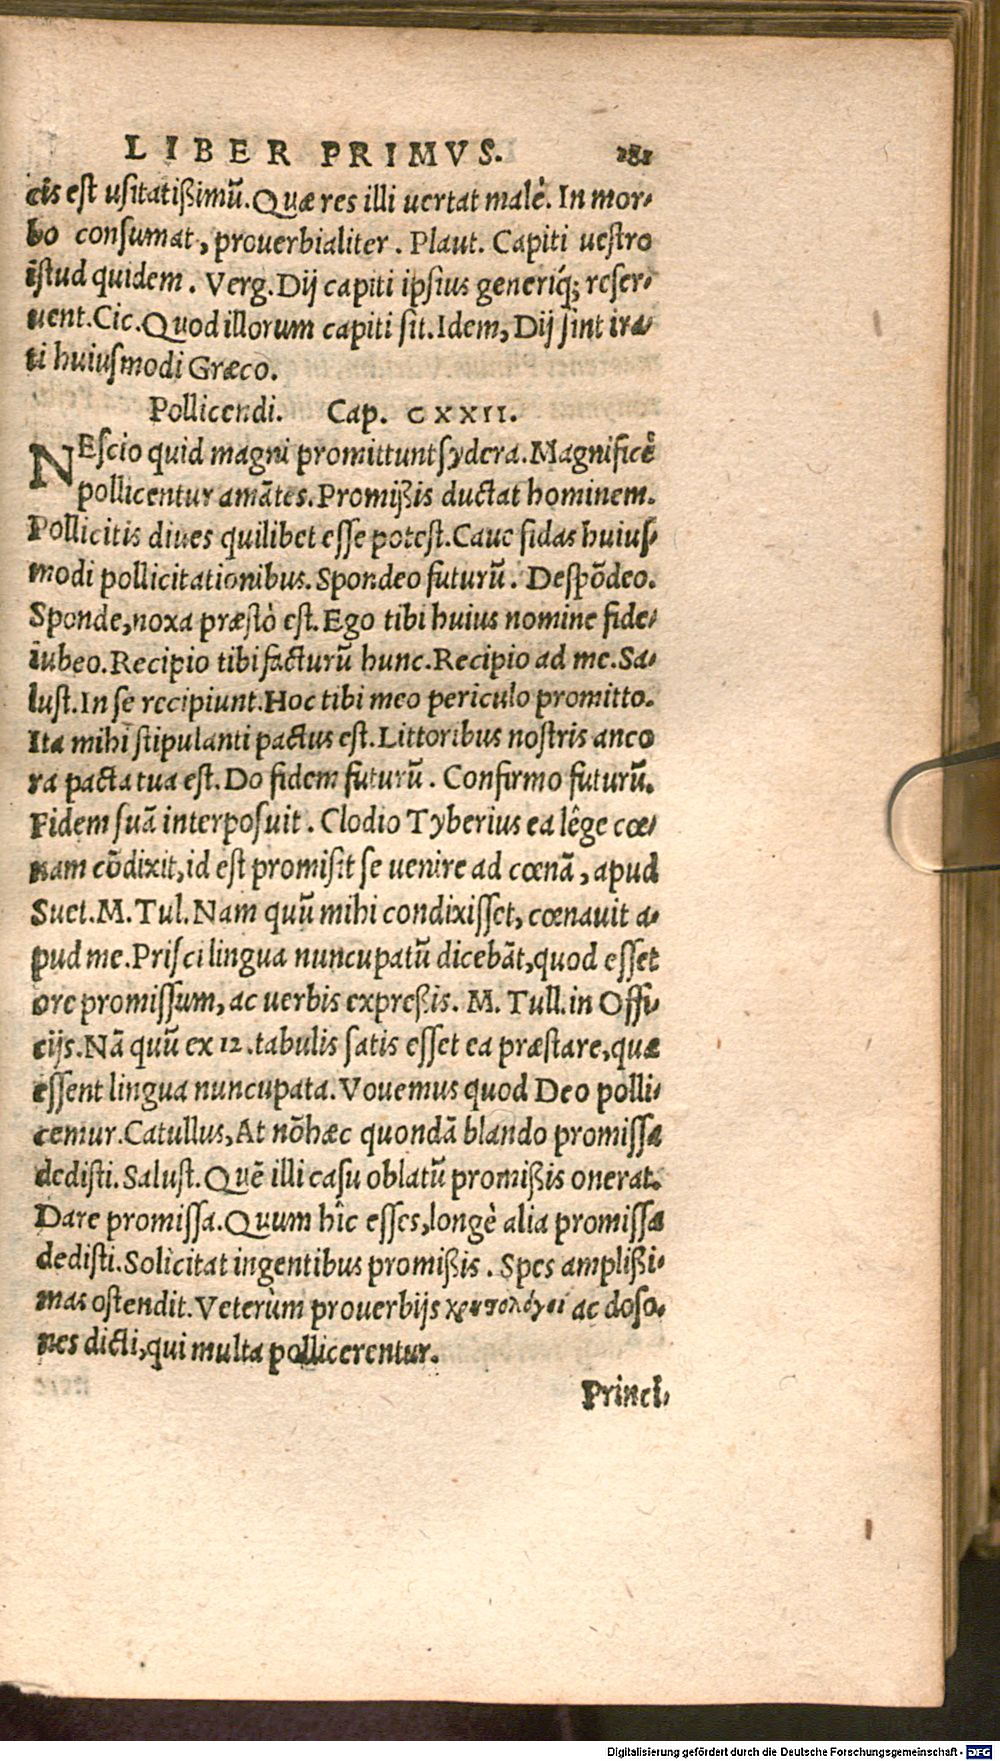 LIBER PRIMVS. 181
cis est usitatißimũ. Quæ res illi uertat malè. In mor-
bo consumat, prouerbialiter. Plaut. Capiti uestro
istud quidem. Verg. Dij capiti ipsius generiq́; reser-
uent. Cic. Quod illorum capiti sit. Idem, Dij sint ira-
ti huiusmodi Græco.
Pollicendi. Cap. CXXII.
NEscio quid magni promittunt sydera. Magnificè
pollicentur amãtes. Promißis ductat hominem.
Pollicitis diues quilibet esse potest. Caue fidas huius-
modi pollicitationibus. Spondeo futurũ. Despõdeo.
Sponde, noxa præstò est. Ego tibi huius nomine fide-
iubeo. Recipio tibi facturũ hunc. Recipio ad me. Sa-
lust. In se recipiunt. Hoc tibi meo periculo promitto.
Ita mihi stipulanti pactus est. Littoribus nostris anco
ra pacta tua est. Do fidem futurũ. Confirmo futurũ.
Fidem suã interposuit. Clodio Tyberius ea lêge cœ-
nam cõdixit, id est promisit se uenire ad cœnã, apud
Suet. M. Tul. Nam quũ mihi condixisset, cœnauit a-
pud me. Prisci lingua nuncupatũ dicebãt, quod esset
ore promissum, ac uerbis expreßis. M. Tull. in Offi-
cijs. Nã quũ ex 12. tabulis satis esset ea præstare, quæ
essent lingua nuncupata. Vouemus quod Deo polli-
cemur. Catullus, At nõ hæc quondã blando promissa
dedisti. Salust. Quẽ illi casu oblatũ promißis onerat.
Dare promissa. Quum hîc esses, longè alia promissa
dedisti. Solicitat ingentibus promißis. Spes amplißi-
mas ostendit. Veterùm prouerbijs χρυσολόγοι ac doso-
nes dicti, qui multa pollicerentur.
Princi-
Digitalisierung gefördert durch die Deutsche Forschungsgemeinschaft - DFG